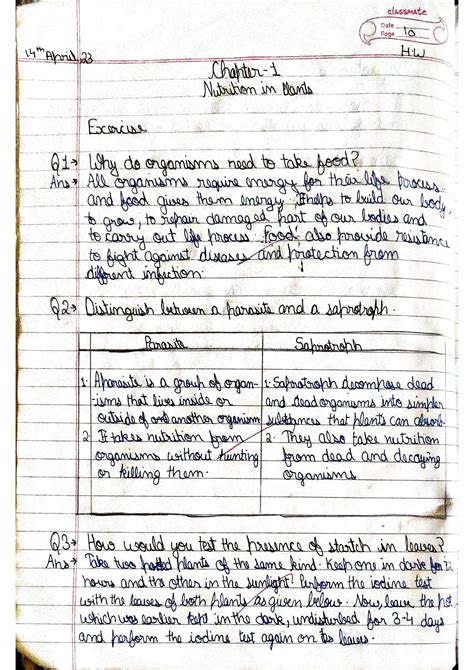 classmate
Date
Page 10
14th April, 23
H.W
Chapter-1
Nutrition in Plants
Exercise
Q1→ Why do organisms need to take food?
Ans→ All organisms require energy for their life process
and food gives them energy. It helps to build our body,
to grow, to repair damaged part of our bodies and
to carry out life process. Food also provide resistance
to fight against diseases and protection from
different infection.
Q2→ Distinguish between a parasite and a saprotroph.
Parasite Saprotroph
1. A parasite is a group of organ- 1. Saprotroph decompose dead
isms that lives inside or and dead organisms into simpler
outside of another organism substances that plants can absorb.
2. It takes nutrition from 2. They also take nutrition
organisms without hunting from dead and decaying
or killing them. organisms
Q3→ How would you test the presence of startch in leaves?
Ans→ Take two potted plants of the same kind. Keep one in dark for 72
hours and the other in the sunlight? Perform the iodine test
with the leaves of both plants as given below. Now, leave the pot
which was earlier kept in the dark, undisturbed for 3-4 days
and perform the iodine test again on its leaves.